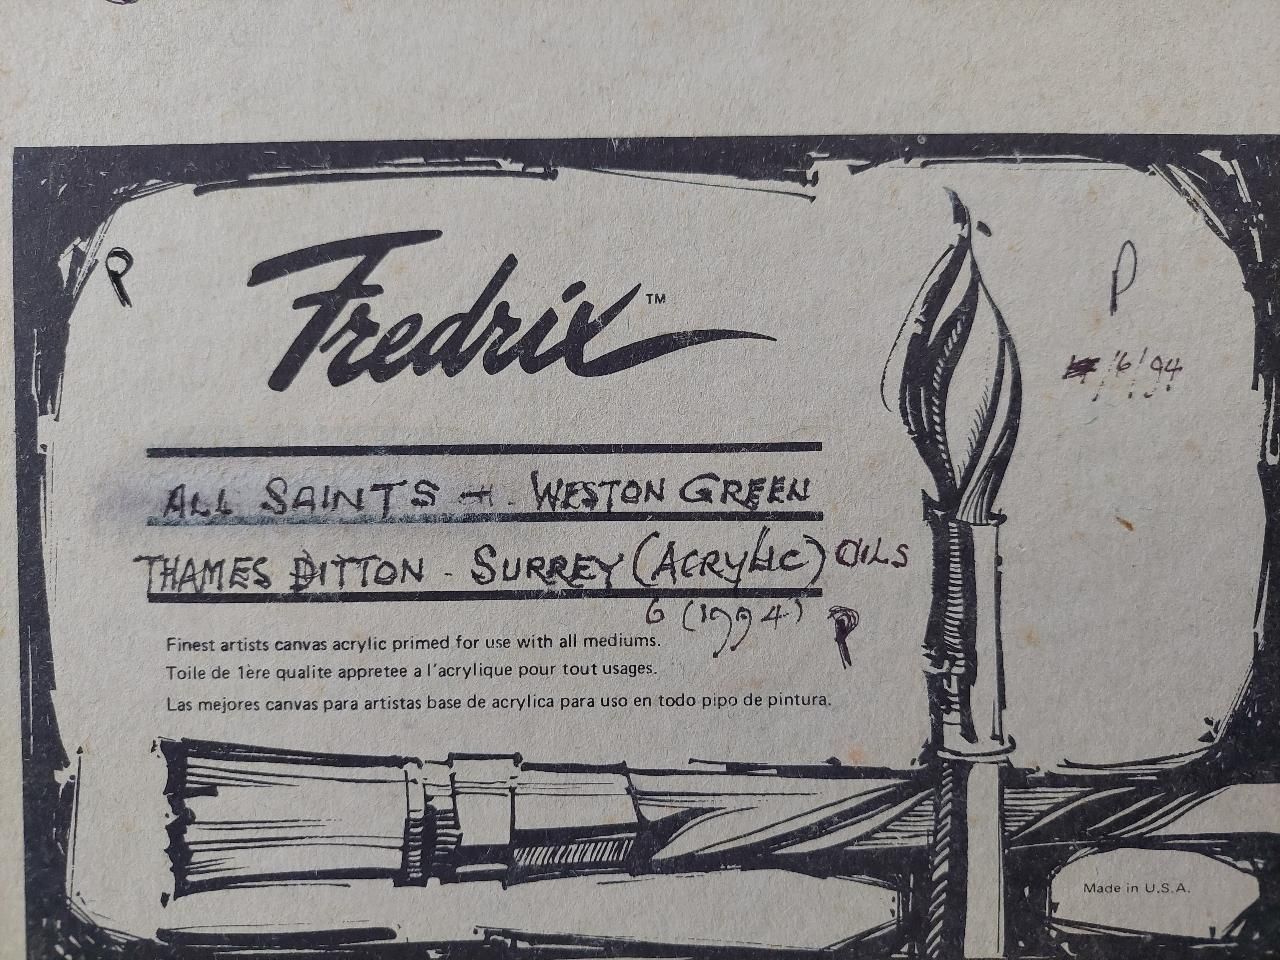 Fredrix™
P
P
6/94
ALL SAINTS - WESTON GREEN
THAMES DITTON - SURREY (ACRYLIC) OILS
6 (1994) P
Finest artists canvas acrylic primed for use with all mediums.
Toile de 1ère qualite appretee a l'acrylique pour tout usages.
Las mejores canvas para artistas base de acrylica para uso en todo pipo de pintura.
Made in U.S.A.